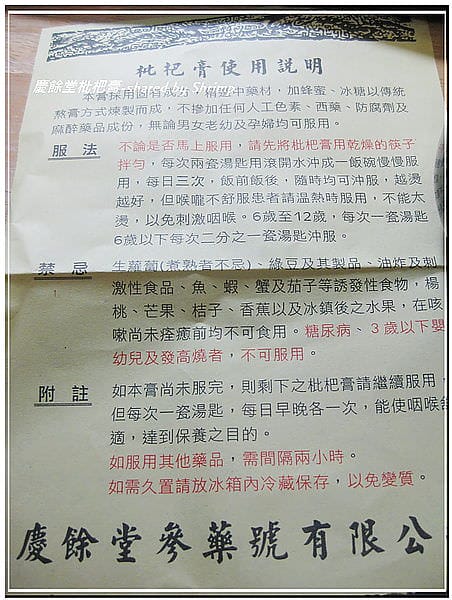 枇杷膏使用說明
慶餘堂枇杷膏 shared by
本膏採用固有
中藥材，加蜂蜜、冰糖以傳統
熬膏方式煉製而成，不摻加任何人工色素、西藥、防腐劑及
麻醉藥品成份，無論男女老幼及孕婦均可服用。
服法 不論是否馬上服用，請先將枇杷膏用乾燥的筷子
拌勻，每次兩瓷湯匙用滾開水沖成一飯碗慢慢服
用，每日三次，飯前飯後，隨時均可沖服，越燙
越好，但喉嚨不舒服患者請溫熱時服用，不能太
燙，以免刺激咽喉。6歲至12歲，每次一瓷湯匙
6歲以下每次二分之一瓷湯匙沖服。
禁忌 生蘿蔔(煮熟者不忌)、綠豆及其製品、油炸及刺
激性食品、魚、蝦、蟹及茄子等誘發性食物，楊
桃、芒果、桔子、香蕉以及冰鎮後之水果，在咳
嗽尚未痊癒前均不可食用。糖尿病、3歲以下嬰
幼兒及發高燒者，不可服用。
附註 如本膏尚未服完，則剩下之枇杷膏請繼續服用，
但每次一瓷湯匙，每日早晚各一次，能使咽喉舒
適，達到保養之目的。
如服用其他藥品，需間隔兩小時。
如需久置請放冰箱內冷藏保存，以免變質。
慶餘堂參藥號有限公